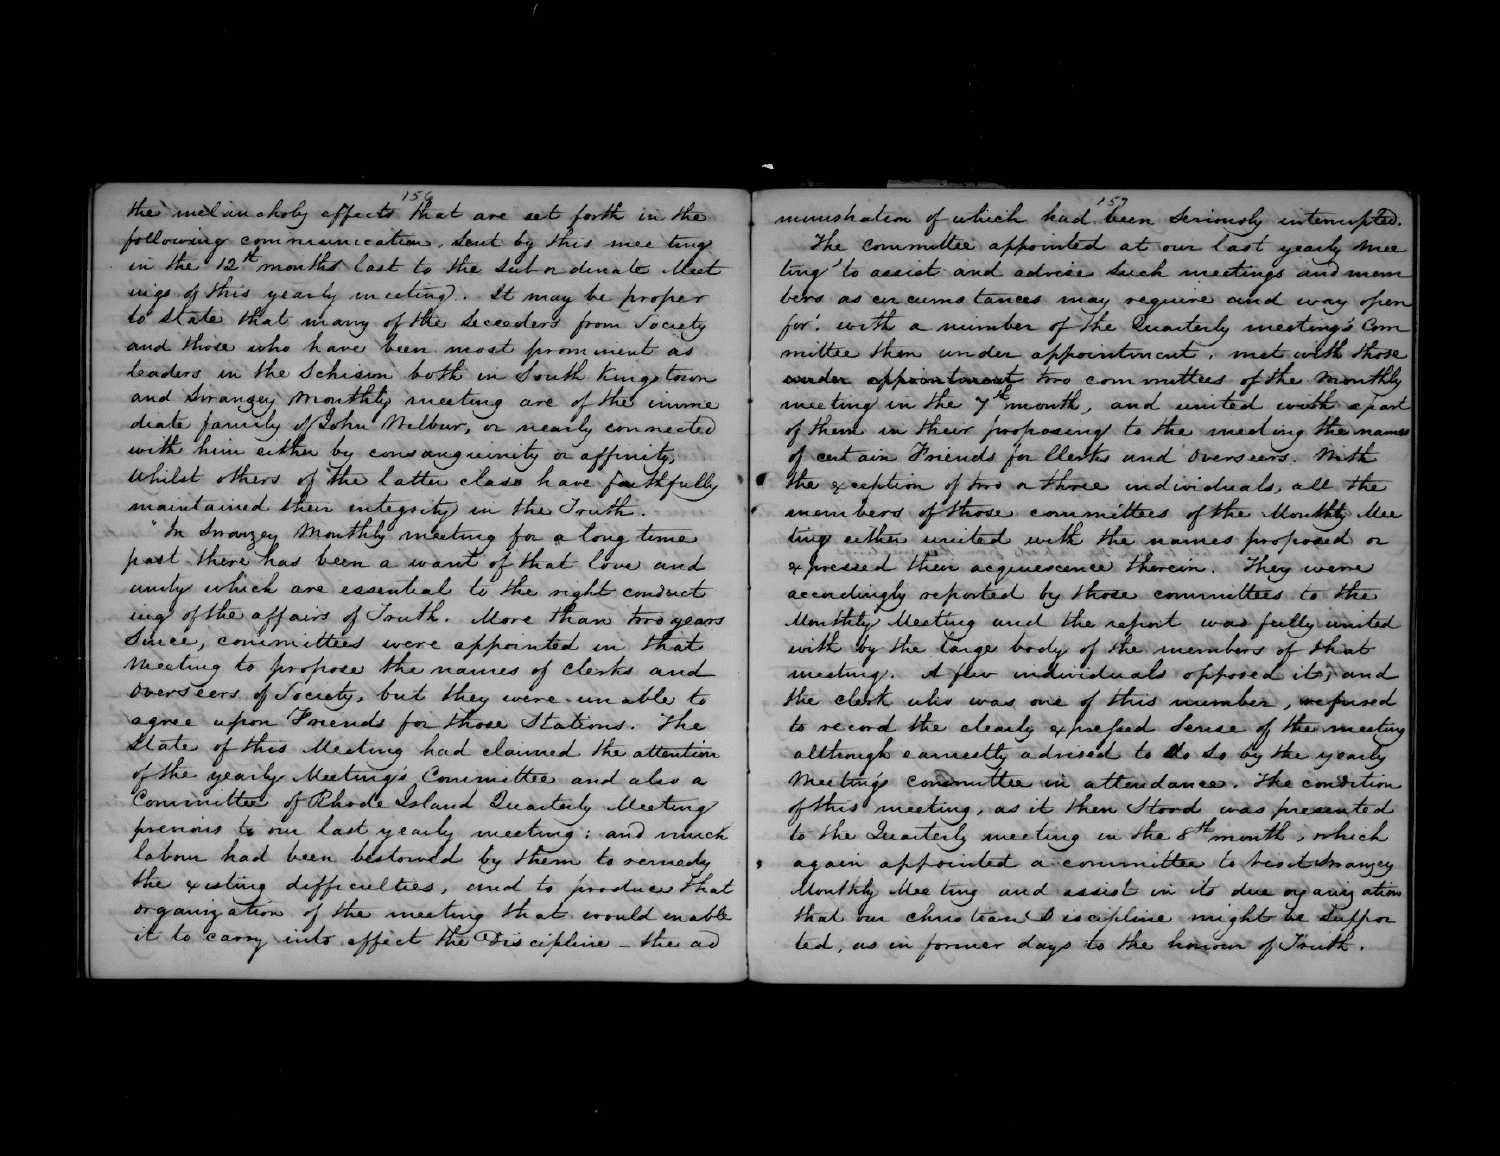 156
the melancholy effects that are set forth in the
following communication, sent by this mee ting
in the 12th months last to the Subordinate Meet
ings of this yearly meeting. It may be proper
to state that many of the Seceeders from Society
and those who have been most prominent as
leaders in the Schism both in South Kingstown
and Swanzey Monthly meeting are of the imme
diate family of John Wilbur, or nearly connected
with him either by consanguinity or affinity,
Whilst others of the latter class have faithfully
maintained their integrity in the Truth.
"In Swanzey Monthly meeting for a long time
past there has been a want of that love and
unity which are essential to the right conduct
ing of the affairs of Truth. More than two years
Since, committees were appointed in that
Meeting to propose the names of Clerks and
Overseers of Society, but they were unable to
agree upon Friends for those Stations. The
State of this Meeting had claimed the attention
of the yearly Meeting's Committee and also a
Committee of Rhode Island Quarterly Meeting
previous to our last yearly meeting; and much
labour had been bestowed by them to remedy
the existing difficulties, and to produce that
organization of the meeting that would enable
it to carry into effect the Discipline – the ad
157
ministration of which had been Seriously interrupted.
The committee appointed at our last yearly Mee
ting 'to assist and advise Such meetings and mem
bers as circumstances may require and way open
for'. with a number of the Quarterly meeting's Com
mittee then under appointment, met with those
under appointment two committees of the Monthly
meeting in the 7th month, and united with a part
of them in their proposing to the meeting the names
of certain Friends for Clerks and Overseers. With
the exception of two or three individuals, all the
members of those committees of the Monthly Mee
ting either united with the names proposed or
expressed their acquiescence therein. They were
accordingly reported by those committees to the
Monthly Meeting and the report was fully united
with by the large body of the members of that
meeting. A few individuals opposed it, and
the clerk who was one of this number, refused
to record the clearly expressed Sense of the meeting
although earnestly advised to do So by the yearly
Meeting's committee in attendance. The condition
of this meeting, as it then Stood was presented
to the Quarterly meeting in the 8th month, which
again appointed a committee to visit Swanzey
Monthly Mee ting and assist in its due organization
that our christian Discipline might be Suppor
ted, as in former days to the honour of Truth.